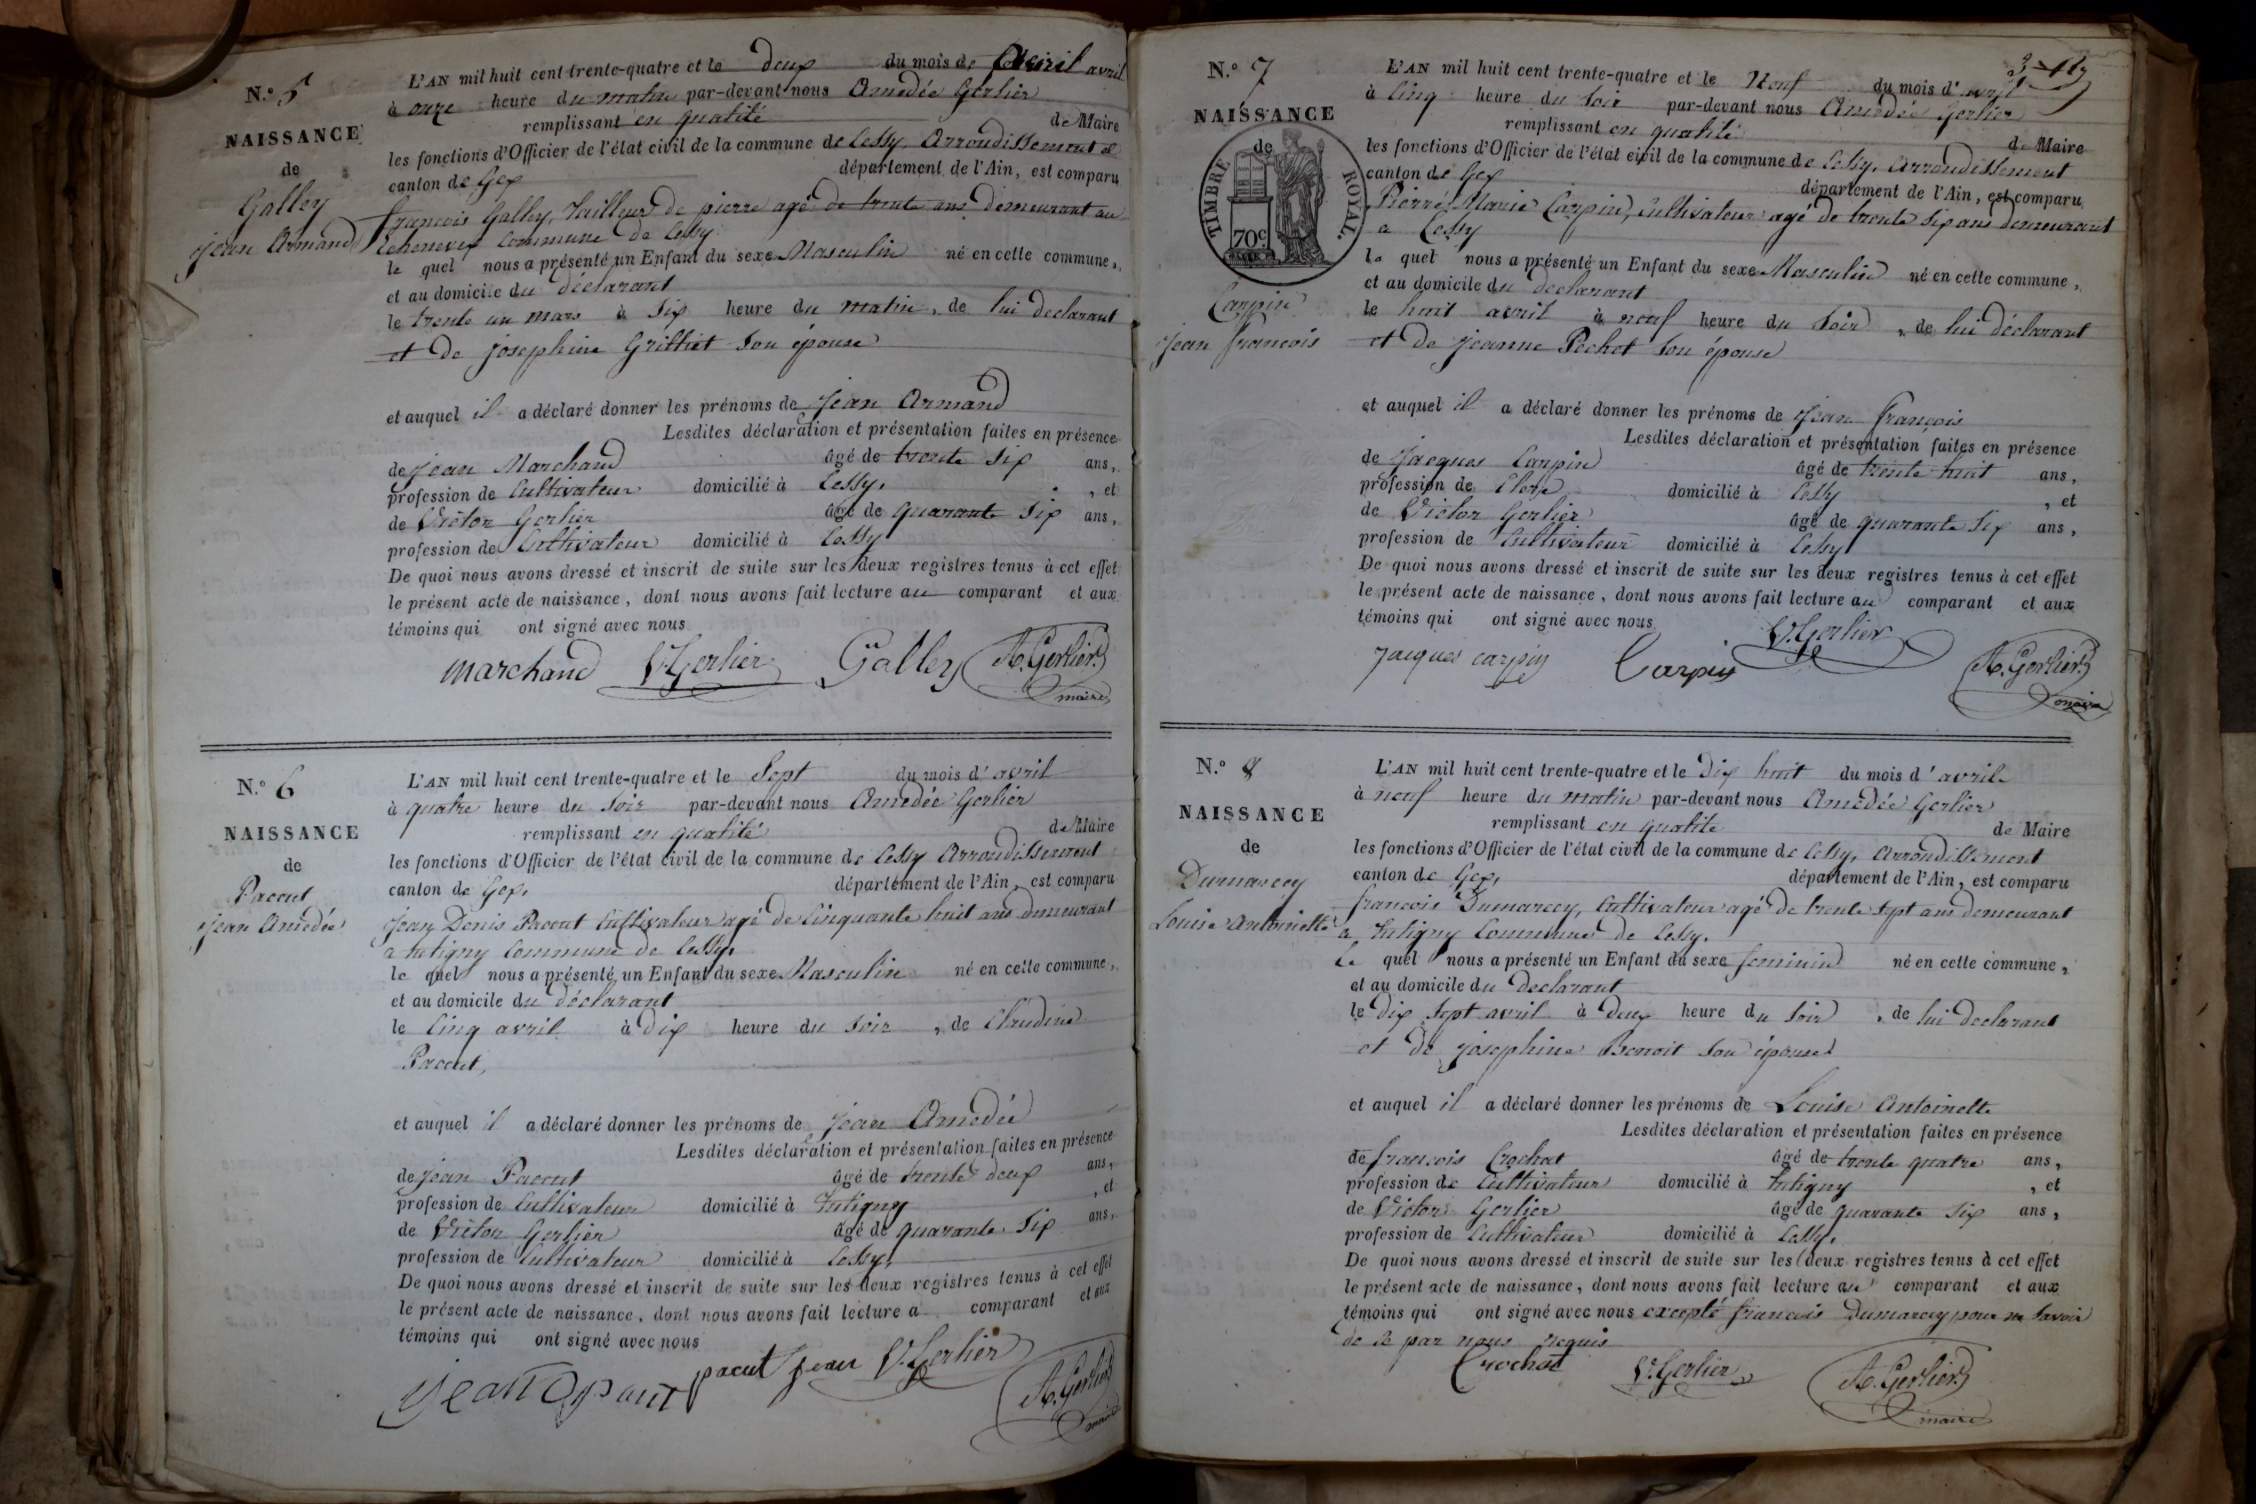 N.° 5
NAISSANCE
de
Galley
Jean Armand
L'AN mil huit cent trente-quatre et le deux du mois de avril
à onze heure du matin par-devant nous Amedée Gerlier
remplissant en qualité de Maire
les fonctions d'Officier de l'état civil de la commune de Cessy, Arrondissement et
canton de Gex département de l'Ain, est comparu
françois Galley, tailleur de pierre agé de trente ans demeurant au
commune de Cessy
le quel nous a présenté un Enfant du sexe Masculin né en cette commune,
et au domicile du déclarant
le trente un mars à six heure du matin, de lui declarant
et de josephine Grilliet son épouse
et auquel il a déclaré donner les prénoms de Jean Armand
Lesdites déclaration et présentation faites en présence
de Jean Marchand âgé de trente six ans,
profession de Cultivateur domicilié à Cessy, et
de Victor Gerlier âgé de quarante six ans,
profession de Cultivateur domicilié à Cessy
De quoi nous avons dressé et inscrit de suite sur les deux registres tenus à cet effet
le présent acte de naissance, dont nous avons fait lecture au comparant et aux
témoins qui ont signé avec nous
Marchand V. Gerlier Galley A. Gerlier
maire
N.° 6
NAISSANCE
de
Pacout
Jean Amedée
L'AN mil huit cent trente-quatre et le Sept du mois d'avril
à quatre heure du soir par-devant nous Amedée Gerlier
remplissant en qualité de Maire
les fonctions d'Officier de l'état civil de la commune de Cessy Arrondissement
canton de Gex, département de l'Ain, est comparu
Jean Denis Pacout Cultivateur agé de Cinquante huit ans demeurant
a tutigny Commune de Cessy,
le quel nous a présenté un Enfant du sexe Masculin né en cette commune,
et au domicile du déclarant
le Cinq avril à dix heure du soir, de Claudine
Pacout,
et auquel il a déclaré donner les prénoms de Jean Amedée
Lesdites déclaration et présentation faites en présence
de Jean Pacout âgé de trente deux ans,
profession de Cultivateur domicilié à tutigny, et
de Victor Gerlier âgé de quarante six ans,
profession de Cultivateur domicilié à Cessy,
De quoi nous avons dressé et inscrit de suite sur les deux registres tenus à cet effet
le présent acte de naissance, dont nous avons fait lecture a comparant et aux
témoins qui ont signé avec nous
Jean pacut Jean V. Gerlier A. Gerlier
maire
N.° 7
NAISSANCE
de
TIMBRE ROYAL.
70c
Carpin
Jean françois
L'AN mil huit cent trente-quatre et le Neuf du mois d'avril
à Cinq heure du soir par-devant nous Amedée Gerlier
remplissant en qualité de Maire
les fonctions d'Officier de l'état civil de la commune de Cessy, Arrondissement
canton de Gex département de l'Ain, est comparu
Pierre Marie Carpin, Cultivateur agé de trente six ans demeurant
a Cessy
le quel nous a présenté un Enfant du sexe Masculin né en cette commune,
et au domicile du declarant
le huit avril à neuf heure du soir, de lui déclarant
et de jeanne Pechot son épouse
et auquel il a déclaré donner les prénoms de Jean françois
Lesdites déclaration et présentation faites en présence
de Jacques Carpin âgé de trente huit ans,
profession de domicilié à Cessy, et
de Victor Gerlier âgé de quarante six ans,
profession de Cultivateur domicilié à Cessy
De quoi nous avons dressé et inscrit de suite sur les deux registres tenus à cet effet
le présent acte de naissance, dont nous avons fait lecture au comparant et aux
témoins qui ont signé avec nous
V. Gerlier
Jacques carpin Carpin A. Gerlier
maire
N.° 8
NAISSANCE
de
Dumarcey
Louise Antoinette
L'AN mil huit cent trente-quatre et le Dix huit du mois d'avril
à neuf heure du matin par-devant nous Amedée Gerlier
remplissant en qualité de Maire
les fonctions d'Officier de l'état civil de la commune de Cessy, Arrondissement
canton de Gex, département de l'Ain, est comparu
françois Dumarcey, Cultivateur agé de trente sept ans demeurant
a tutigny Commune de Cessy.
Le quel nous a présenté un Enfant du sexe feminin né en cette commune,
et au domicile du declarant
le dix sept avril à deux heure du soir, de lui declarant
et de josephine Benoit son épouse
et auquel il a déclaré donner les prénoms de Louise Antoinette
Lesdites déclaration et présentation faites en présence
de françois Crochat âgé de trente quatre ans,
profession de Cultivateur domicilié à tutigny, et
de Victor Gerlier âgé de quarante six ans,
profession de Cultivateur domicilié à Cessy,
De quoi nous avons dressé et inscrit de suite sur les deux registres tenus à cet effet
le présent acte de naissance, dont nous avons fait lecture au comparant et aux
témoins qui ont signé avec nous excepté françois Dumarcey pour ne savoir
de ce par nous requis
Crochat V. Gerlier A. Gerlier
maire